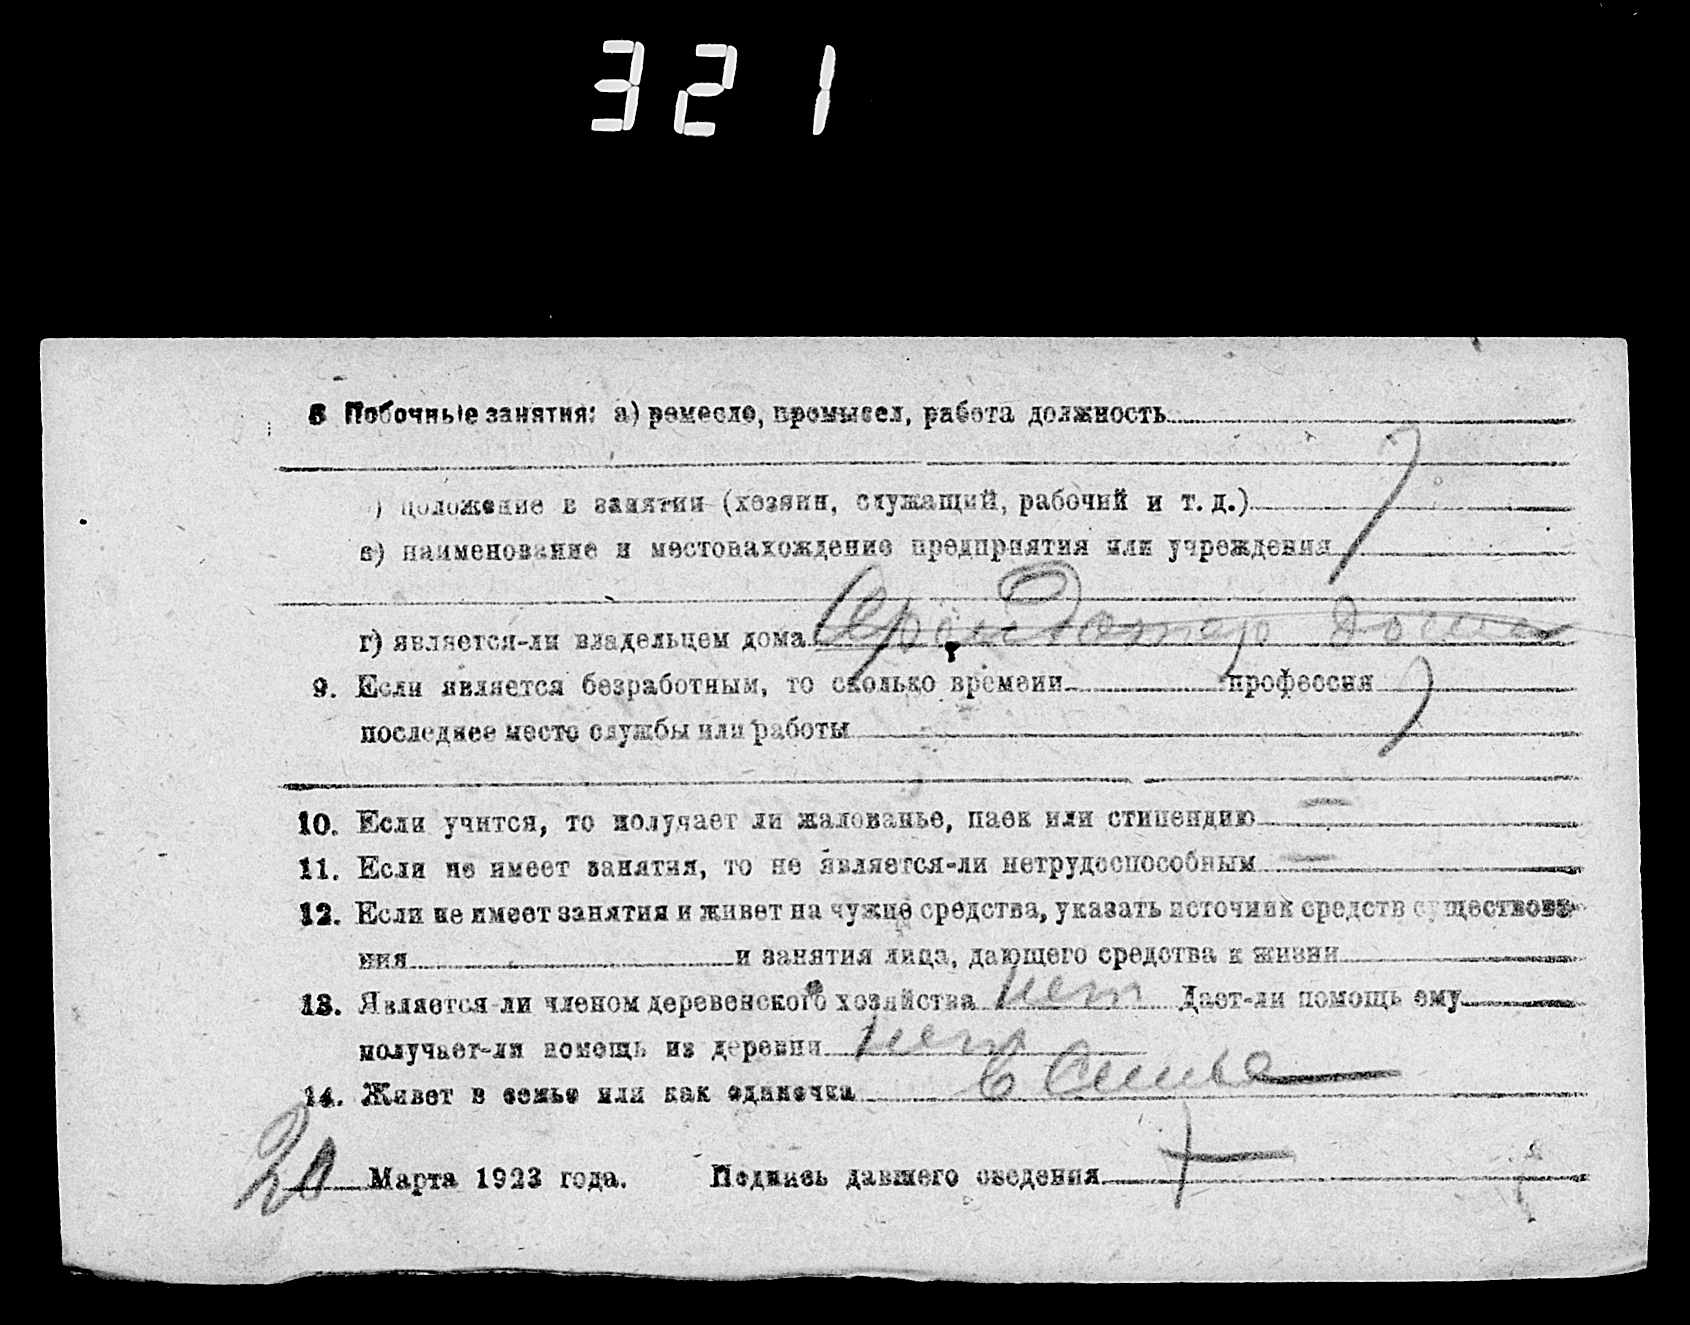 321
8 Побочные занятия: а) ремесло, промысел, работа должность
) положение в занятии (хозяин, служащий, рабочий и т. д.)
в) наименование и местонахождение предприятия или учреждения
г) является-ли владельцем дома Арендатор дома
9. Если является безработным, то сколько времени профессия
последнее место службы или работы
10. Если учится, то получает ли жалованье, паек или стипендию —
11. Если не имеет занятия, то не является-ли нетрудоспособным —
12. Если не имеет занятия и живет на чужие средства, указать источник средств существова-
ния и занятия лица, дающего средства к жизни
13. Является-ли членом деревенского хозяйства нет Дает-ли помощь ему
получает-ли помощь из деревни нет
14. Живет в семье или как одиночка в Семье
20 Марта 1923 года. Подпись давшего сведения +